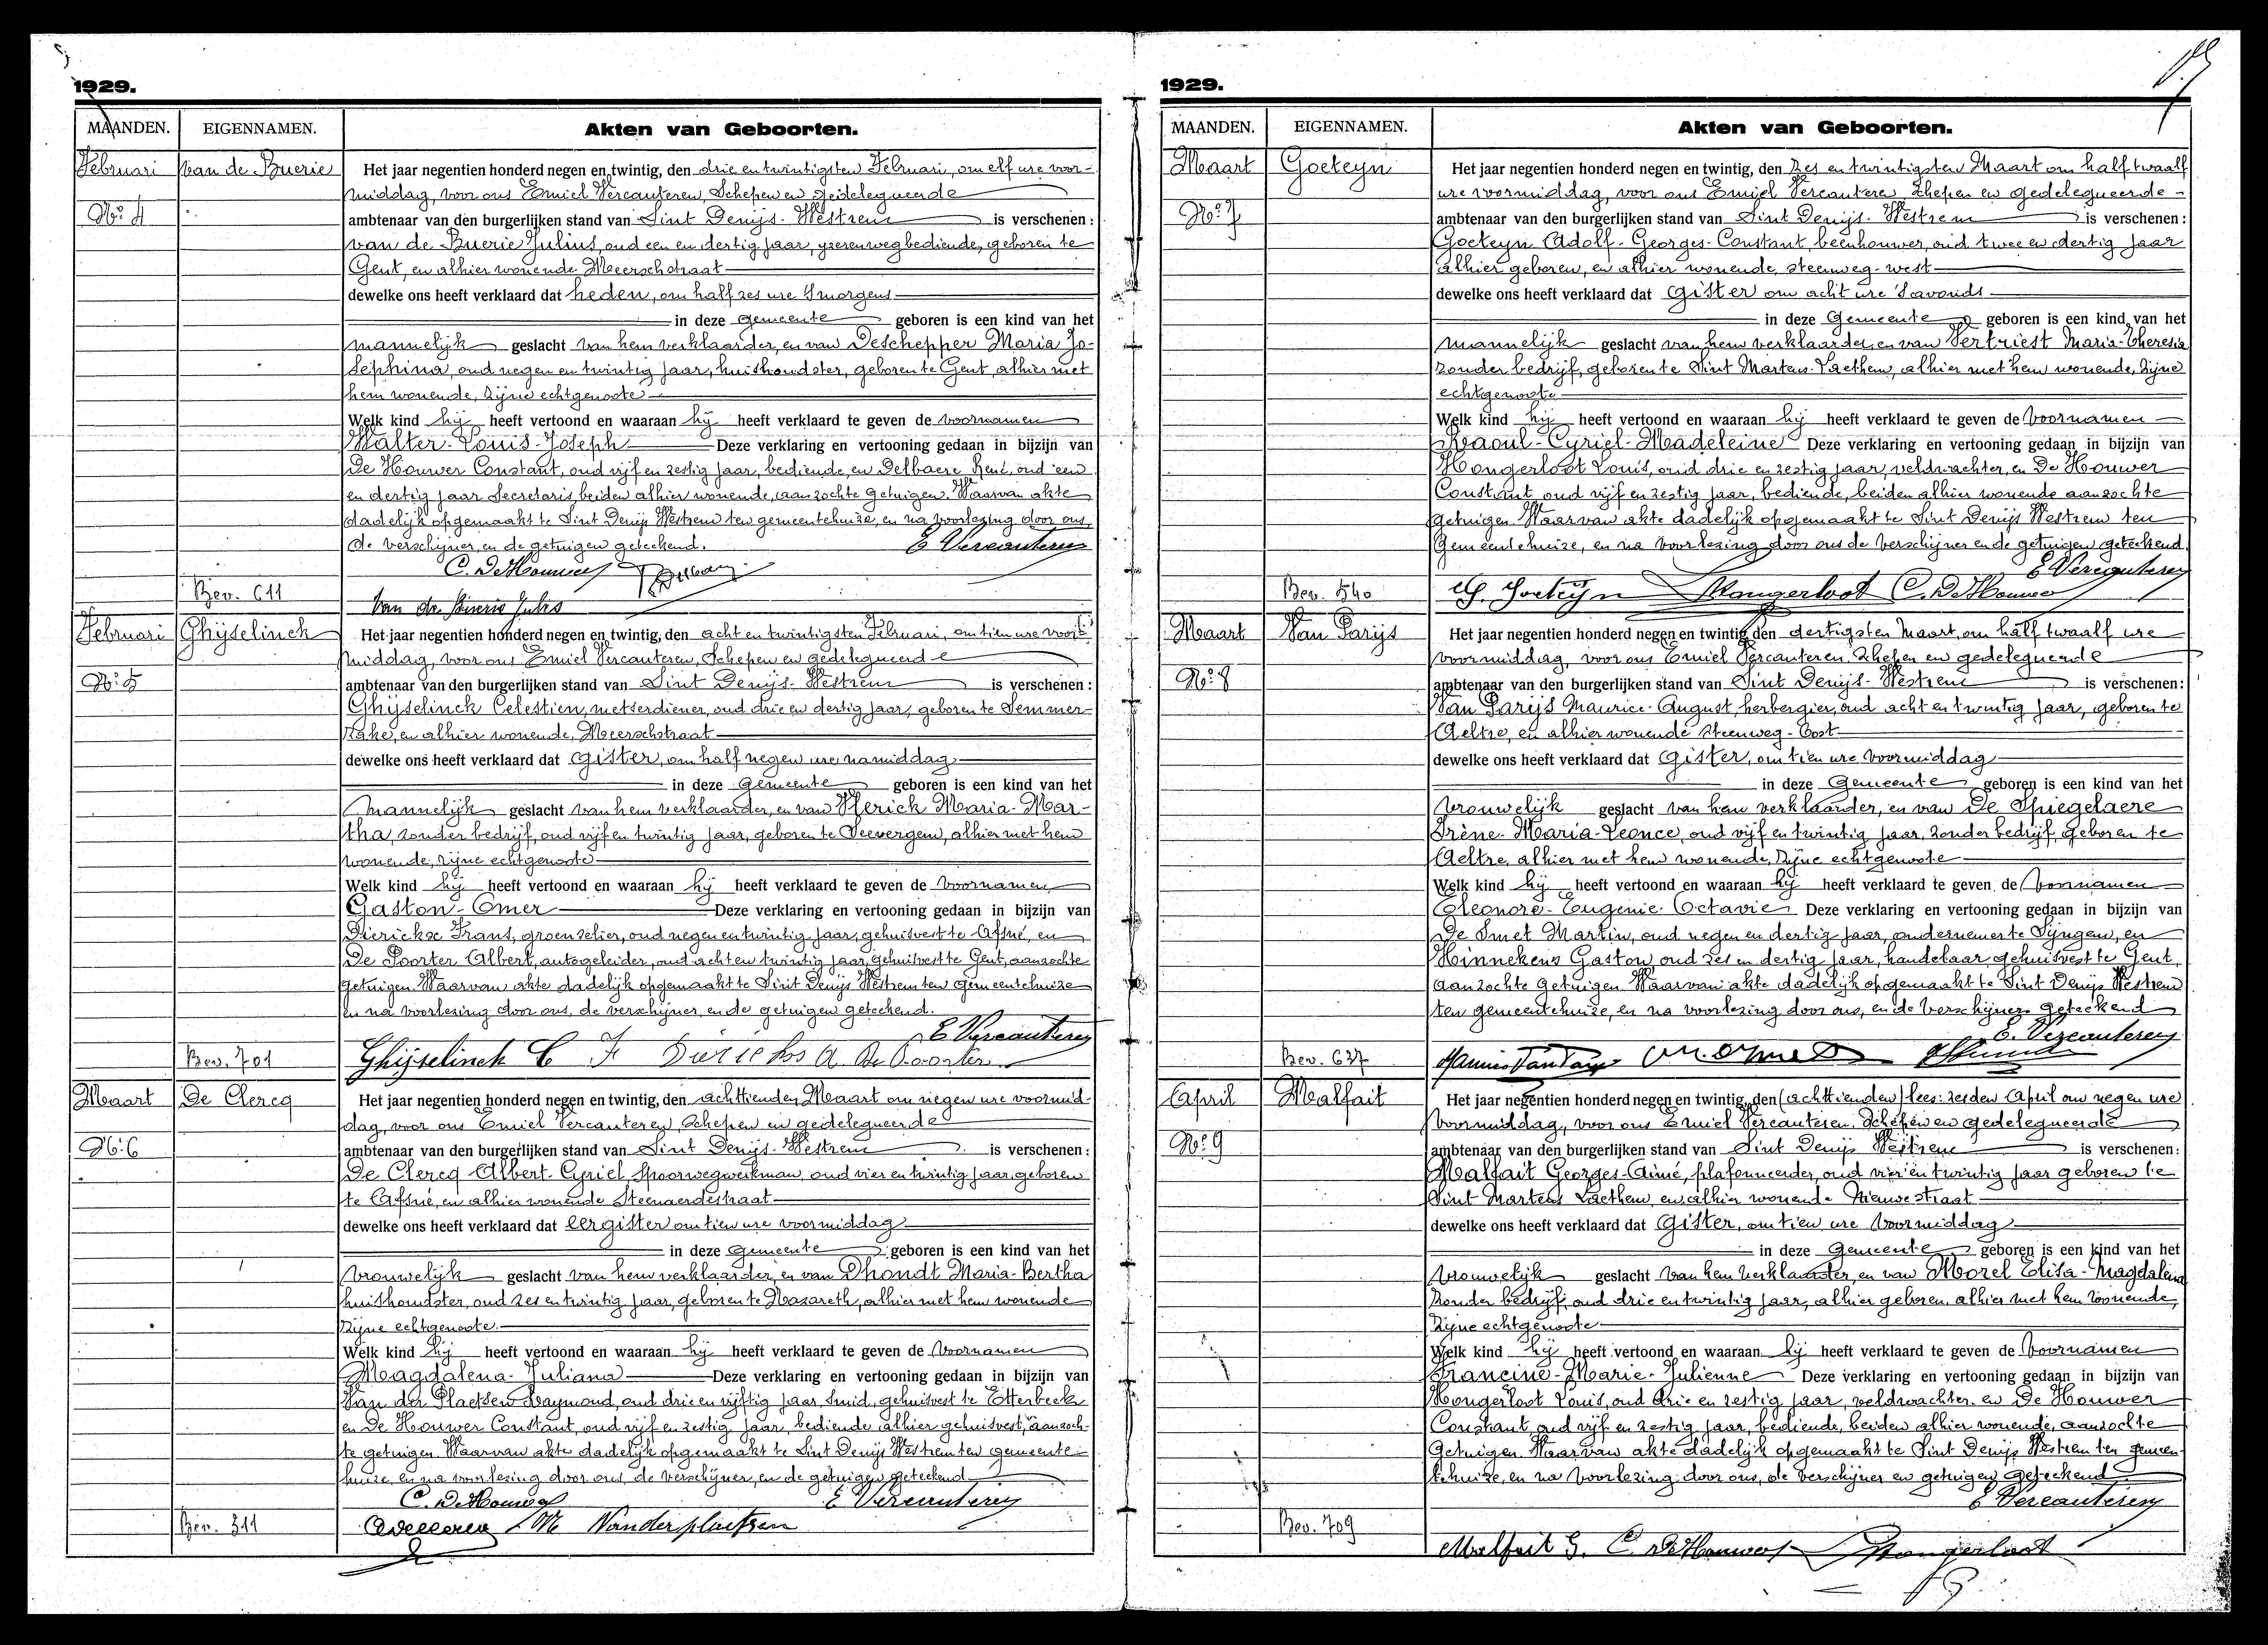 1929.
MAANDEN. EIGENNAMEN. Akten van Geboorten.
Februari van de Buerie Het jaar negentien honderd negen en twintig, den drie en twintigsten Februari, om elf ure voor-
middag, voor ons Emiel Vercauteren, Schepen en gedelegueerde
Nº 4 ambtenaar van den burgerlijken stand van Sint Denijs-Westrem is verschenen:
van de Buerie Julius, oud een en dertig jaar, yzerenwegbediende, geboren te
Gent, en alhier wonende Meerschstraat
dewelke ons heeft verklaard dat heden, om half zes ure 's morgens
in deze gemeente geboren is een kind van het
mannelijk geslacht van hem verklaarder, en van Deschepper Maria Jo-
sephina, oud negen en twintig jaar, huishoudster, geboren te Gent, alhier met
hem wonende, zijne echtgenoote
Welk kind hij heeft vertoond en waaraan hij heeft verklaard te geven de voornamen
Walter-Louis-Joseph Deze verklaring en vertooning gedaan in bijzijn van
De Houwer Constant, oud vijf en zestig jaar, bediende, en Delbaere René, oud een
en dertig jaar Secretaris, beiden alhier wonende, aanzochte getuigen. Waarvan akte
dadelijk opgemaakt te Sint Denijs Westrem ten gemeentehuize, en na voorlezing door ons,
de verschijner, en de getuigen geteekend. E Vercauteren
C. De Houwer
Bev. 611 Van de Buerie Jules
Februari Ghijselinck Het jaar negentien honderd negen en twintig, den acht en twintigsten Februari, om tien ure voor-
middag, voor ons Emiel Vercauteren, Schepen en gedelegueerde
Nº 5 ambtenaar van den burgerlijken stand van Sint Denijs-Westrem is verschenen:
Ghijselinck Celestien, metserdiener, oud drie en dertig jaar, geboren te Semmer-
zake, en alhier wonende, Meerschstraat
dewelke ons heeft verklaard dat gister, om half negen ure namiddag
in deze gemeente geboren is een kind van het
mannelijk geslacht van hem verklaarder, en van Sterick Maria-Mar-
tha, zonder bedrijf, oud vijf en twintig jaar, geboren te Seevergem, alhier met hem
wonende, zijne echtgenoote
Welk kind hij heeft vertoond en waaraan hij heeft verklaard te geven de voornamen
Gaston-Omer Deze verklaring en vertooning gedaan in bijzijn van
Dierickx Frans, groenselier, oud negen en twintig jaar, gehuisvest te Afsné, en
De Poorter Albert, autogeleider, oud acht en twintig jaar, gehuisvest te Gent, aanzochte
getuigen. Waarvan akte dadelijk opgemaakt te Sint Denijs Westrem ten gemeentehuize
en na voorlezing door ons, de verschijner, en de getuigen geteekend.
E Vercauteren
Bev. 701 Ghijselinck C F Dierickx A. De Poorter
Maart De Clercq Het jaar negentien honderd negen en twintig, den achttienden Maart om negen ure voormid-
dag, voor ons Emiel Vercauteren Schepen en gedelegueerde
Nº 6 ambtenaar van den burgerlijken stand van Sint Denijs-Westrem is verschenen:
De Clercq Albert-Cyriel spoorwegwerkman, oud vier en twintig jaar, geboren
te Afsné, en alhier wonende Steenaerdestraat
dewelke ons heeft verklaard dat eergister om tien ure voormiddag
in deze gemeente geboren is een kind van het
vrouwelijk geslacht van hem verklaarder, en van Dhondt Maria-Bertha
huishoudster, oud zes en twintig jaar, geboren te Nazareth, alhier met hem wonende
zijne echtgenoote.
Welk kind hij heeft vertoond en waaraan hij heeft verklaard te geven de voornamen
Magdalena-Juliana Deze verklaring en vertooning gedaan in bijzijn van
Van der Plaetsen Raymond, oud drie en vijftig jaar, smid, gehuisvest te Etterbeek
en De Houwer Constant, oud vijf en zestig jaar, bediende alhier gehuisvest, aanzoch-
te getuigen. Waarvan akte dadelijk opgemaakt te Sint Denijs Westrem ten gemeente-
huize, en na voorlezing door ons, de verschijner, en de getuigen geteekend
C. De Houwer E Vercauteren
Bev. 311 Vanderplaetsen
1929.
MAANDEN. EIGENNAMEN. Akten van Geboorten.
Maart Goeteyn Het jaar negentien honderd negen en twintig, den zes en twintigsten Maart om half twaalf
ure voormiddag, voor ons Emiel Vercauteren Schepen en gedelegueerde-
Nº 7 ambtenaar van den burgerlijken stand van Sint Denijs-Westrem is verschenen:
Goeteyn Adolf-Georges-Constant, beenhouwer, oud twee en dertig jaar
alhier geboren, en alhier wonende, steenweg-west
dewelke ons heeft verklaard dat gister om acht ure 's avonds
in deze gemeente geboren is een kind van het
mannelijk geslacht van hem verklaarder, en van Vertriest Maria-Theresia
zonder bedrijf, geboren te Sint Martens-Laethem, alhier met hem wonende, zijne
echtgenoote
Welk kind hij heeft vertoond en waaraan hij heeft verklaard te geven de voornamen
Raoul-Cyriel-Madeleine Deze verklaring en vertooning gedaan in bijzijn van
Hongerloot Louis, oud drie en zestig jaar, veldwachter, en De Houwer
Constant, oud vijf en zestig jaar, bediende, beiden alhier wonende aanzochte
getuigen. Waarvan akte dadelijk opgemaakt te Sint Denijs Westrem ten
Gemeentehuize, en na voorlezing door ons de verschijner en de getuigen geteekend.
E Vercauteren
Bev. 540 Goeteyn Hongerloot C. De Houwer
Maart Van Parijs Het jaar negentien honderd negen en twintig, den dertigsten Maart, om half twaalf ure
voormiddag, voor ons Emiel Vercauteren. Schepen en gedelegueerde
Nº 8 ambtenaar van den burgerlijken stand van Sint Denijs-Westrem is verschenen:
Van Parijs Maurice-August, herbergier, oud acht en twintig jaar, geboren te
Aeltre, en alhier wonende steenweg-Oost
dewelke ons heeft verklaard dat gister, om tien ure voormiddag
in deze gemeente geboren is een kind van het
vrouwelijk geslacht van hem verklaarder, en van De Spiegelaere
Irène-Maria-Leonce, oud vijf en twintig jaar, zonder bedrijf, geboren te
Aeltre, alhier met hem wonende, zijne echtgenoote
Welk kind hij heeft vertoond en waaraan hij heeft verklaard te geven de voornamen
Eleonore-Eugenie-Octavie Deze verklaring en vertooning gedaan in bijzijn van
De Smet Martin, oud negen en dertig jaar, ondernemer te Synghem, en
Hinnekens Gaston oud zes en dertig jaar, handelaar gehuisvest te Gent,
aanzochte getuigen. Waarvan akte dadelijk opgemaakt te Sint Denijs Westrem
ten gemeentehuize, en na voorlezing door ons, en de verschijners geteekend
E. Vercauteren
Bev. 637
April Malfait Het jaar negentien honderd negen en twintig, den (achttienden) lees: zesden April om negen ure
voormiddag, voor ons Emiel Vercauteren. Schepen en gedelegueerde
Nº 9 ambtenaar van den burgerlijken stand van Sint Denijs Westrem is verschenen:
Malfait Georges-Aimé, plafonneerder, oud vier en twintig jaar geboren te
Sint Martens Laethem, en alhier wonende Nieuwestraat
dewelke ons heeft verklaard dat gister, om tien ure voormiddag
in deze gemeente geboren is een kind van het
vrouwelijk geslacht van hem verklaarder, en van Morel Elisa-Magdalena
zonder bedrijf, oud drie en twintig jaar, alhier geboren, alhier met hem wonende,
zijne echtgenoote
Welk kind hij heeft vertoond en waaraan hij heeft verklaard te geven de voornamen
Francine-Marie-Julienne Deze verklaring en vertooning gedaan in bijzijn van
Hongerloot Louis, oud drie en zestig jaar, veldwachter, en De Houwer
Constant oud vijf en zestig jaar, bediende, beiden alhier wonende, aanzochte
getuigen. Waarvan akte dadelijk opgemaakt te Sint Denijs Westrem ten gemeen-
tehuize, en na voorlezing door ons, de verschijner en getuigen geteekend
E Vercauteren
Bev. 709 Malfait G. C. De Houwer Hongerloot